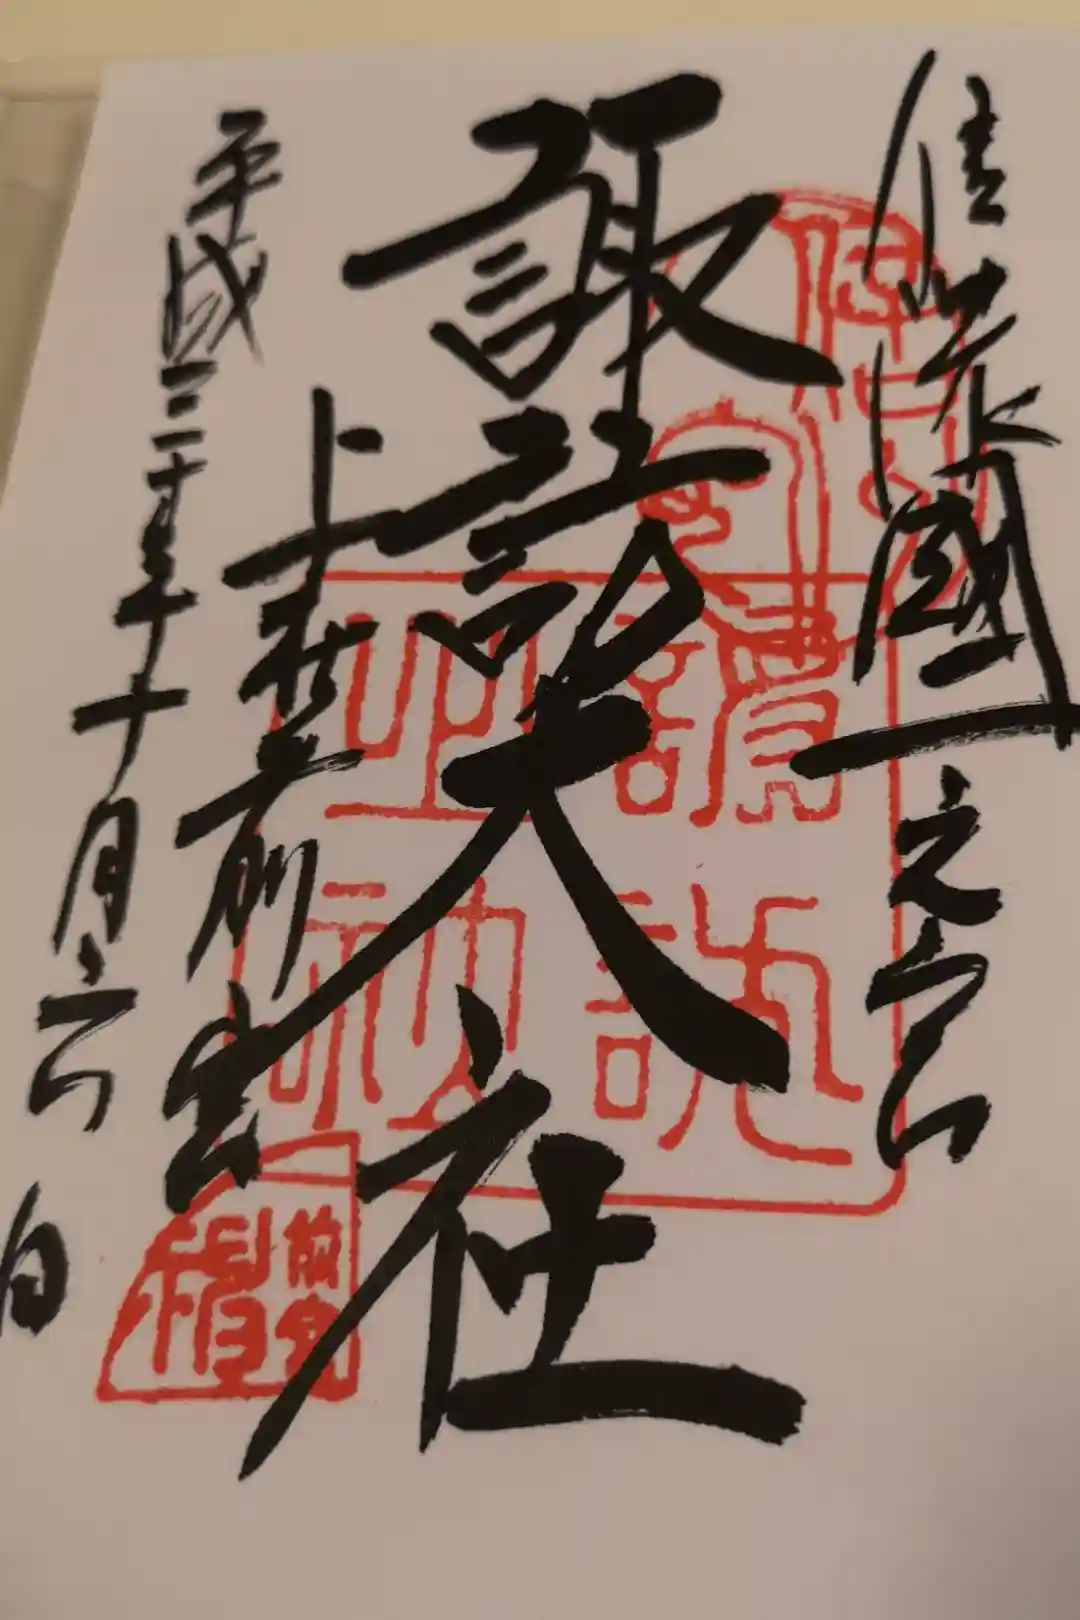 信濃國一之宮
諏訪大社
上社前宮
平成三十年十月六日
諏訪
神社
前宮